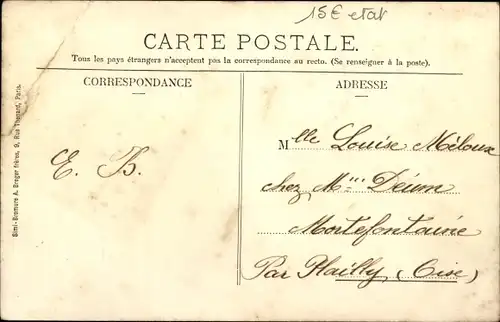 15€ etat
CARTE POSTALE.
Tous les pays étrangers n'acceptent pas la correspondance au recto. (Se renseigner à la poste).
CORRESPONDANCE
ADRESSE
Simi-Bromure A. Breger frères, 9, Rue Thénard, Paris.
E. B.
Mlle Louise Méloux
chez Mme Déum
Mortefontaine
Par Plailly, (Oise)